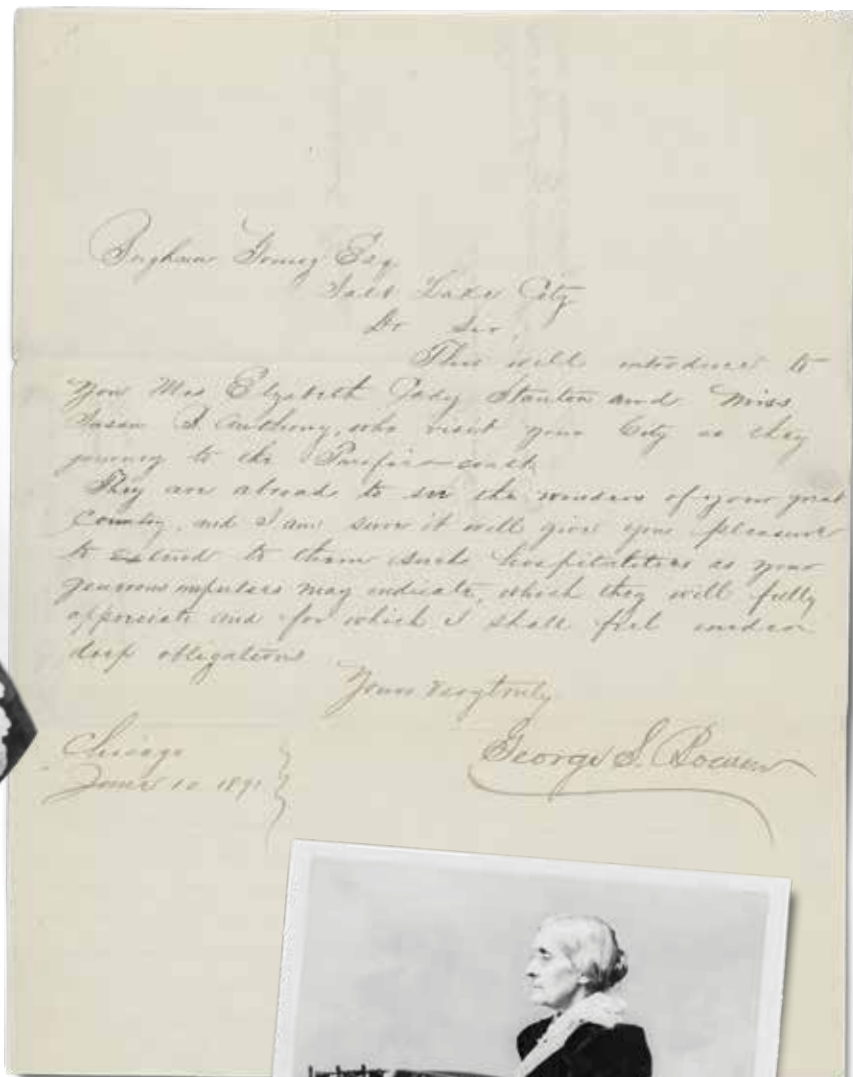 Brigham Young Esq
Salt Lake City
Dr Sir,
This will introduce to
you Mrs Elizabeth Cady Stanton and Miss
Susan B Anthony, who visit your City as they
journey to the Pacific coast
They are abroad to see the wonders of your great
Country, and I am sure it will give you pleasure
to extend to them such hospitalities as your
generous impulses may indicate, which they will fully
appreciate and for which I shall feel under
deep obligations
Yours very truly
George S. Bowen
Chicago
June 10 1871